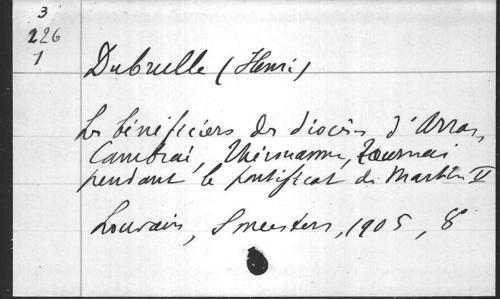 3
226
1
Dubrulle (Henri)
Les bénéficiers des diocèses d'Arras,
Cambrai, Thérouanne, Tournai
pendant le pontificat de Martin V
Louvain, Smeesters, 1905, 8°